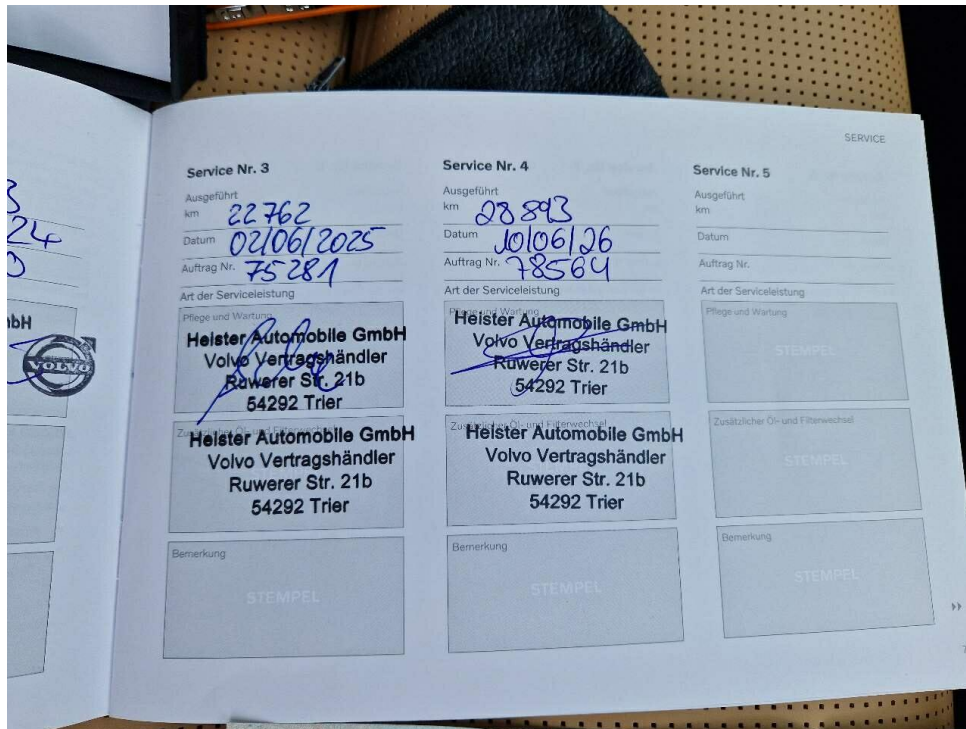 SERVICE
Service Nr. 3
Ausgeführt
km 22762
Datum 02/06/2025
Auftrag Nr. 75281
Art der Serviceleistung
Pflege und Wartung
Heister Automobile GmbH
Volvo Vertragshändler
Ruwerer Str. 21b
54292 Trier
Zusätzlicher Öl- und Filterwechsel
Heister Automobile GmbH
Volvo Vertragshändler
Ruwerer Str. 21b
54292 Trier
Bemerkung
STEMPEL
Service Nr. 4
Ausgeführt
km 28893
Datum 10/06/26
Auftrag Nr. 78564
Art der Serviceleistung
Pflege und Wartung
Heister Automobile GmbH
Volvo Vertragshändler
Ruwerer Str. 21b
54292 Trier
Zusätzlicher Öl- und Filterwechsel
Heister Automobile GmbH
Volvo Vertragshändler
Ruwerer Str. 21b
54292 Trier
Bemerkung
STEMPEL
Service Nr. 5
Ausgeführt
km
Datum
Auftrag Nr.
Art der Serviceleistung
Pflege und Wartung
STEMPEL
Zusätzlicher Öl- und Filterwechsel
STEMPEL
Bemerkung
STEMPEL
VOLVO